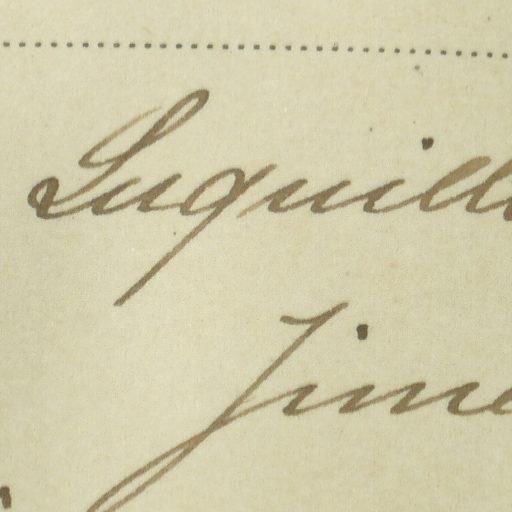 Luquill
Jime